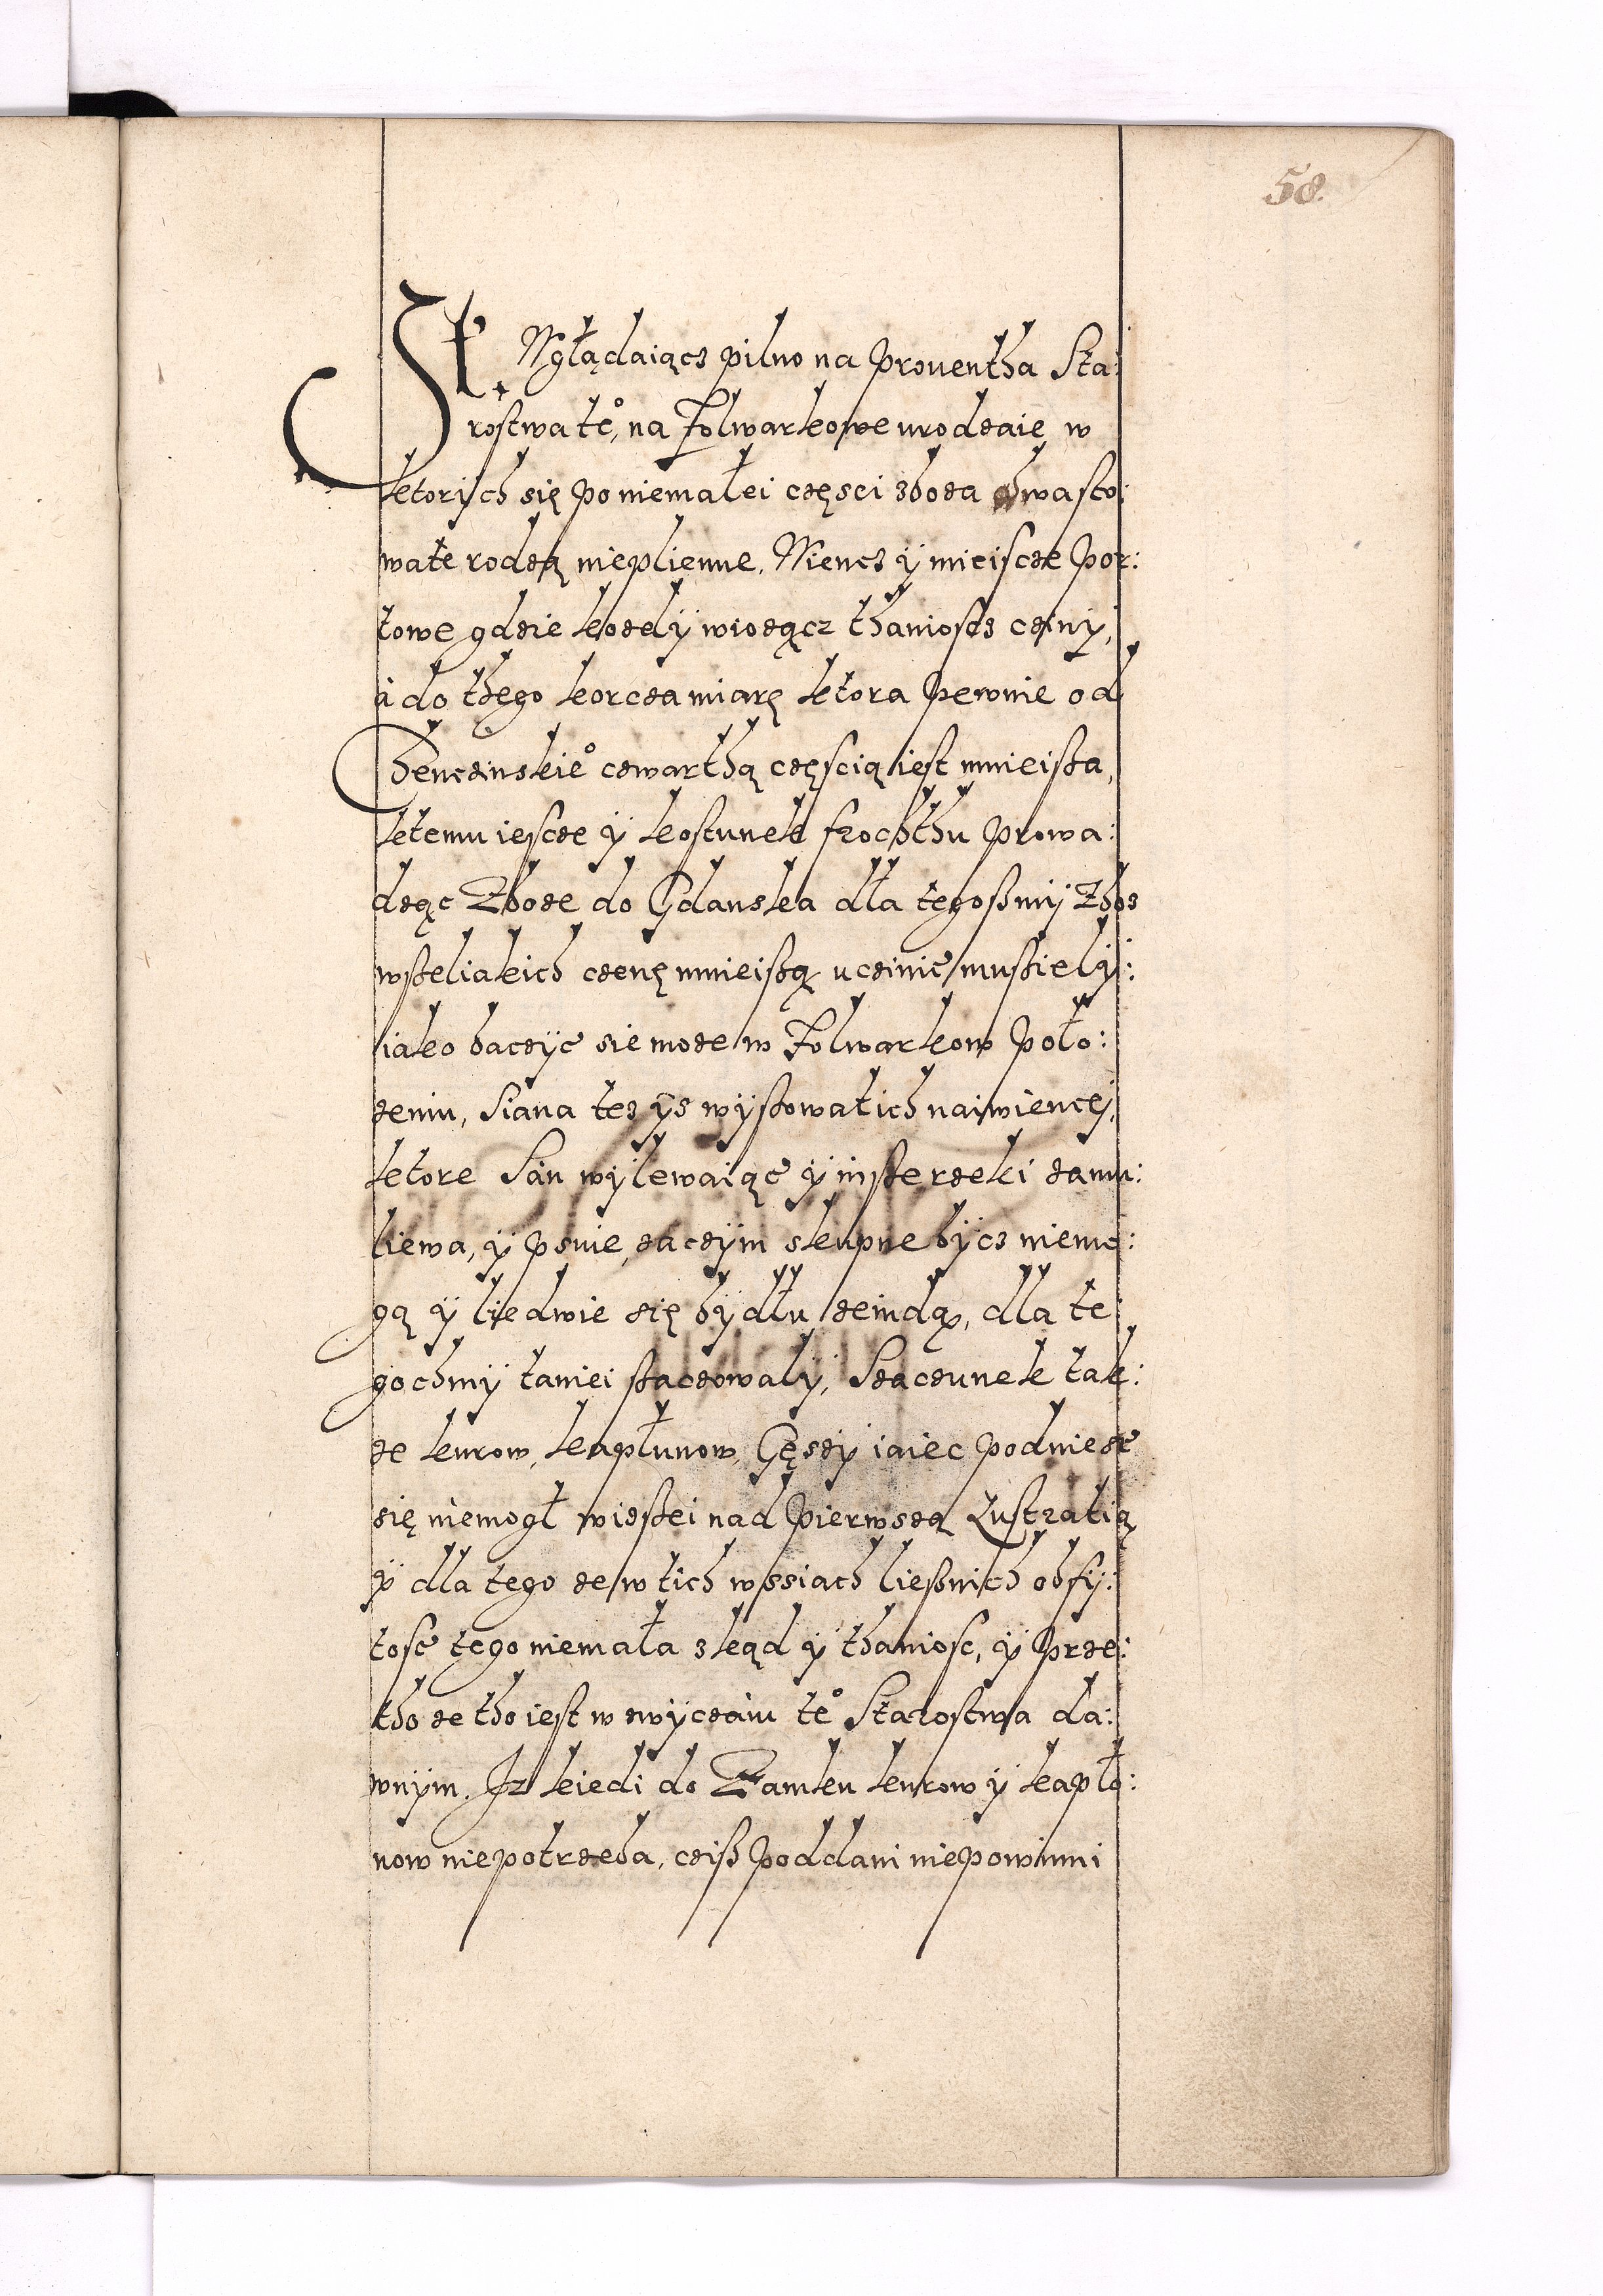 58.
Wgłądaiącz pilno na Proventha Sta:
rostwa te°, na Folwarkowe urodzaie w
ktorych się po niemałei częsci zboza chwasto:
wate rodzą nieplienne. Niencz y mieiscze Por:
towe gdzie kozdy wiozącz thanioscz czjny,
á do thego korcza miarę ktora pewnie od
Chenczinskie° czwarthą częscią iest mnieisza,
ktemu iescze y kosztunek frochthu prowa:
dząc Zboze do Gdanska dla tegoszmy Zboz
wszeliakich czenę mnieiszą uczinić musziely:
iako baczyć sie moze w Folwarkow poło:
zeniu, Siana tez ys wyszowatich naiwiencej,
ktore San wylewaiąc y insze rzeki zamu:
liewa, y psuie, zaczym skupne bycz niemo:
gą y liedwie się bydłu zeindą, dla te
gochmy taniei szaczowaly, Szaczunek tak:
ze kurow, kapłunow, Gęszy iaiec podniesć
się niemogł wiszei nad pierwszą Lustratią
y dla tego ze w tich wssiach liesznich obfi:
tosc tego niemała skąd y thaniosc, y prze:
tho ze tho iest w zwyczáiu te° Starostwa da:
wnym. Iz kiedi do Zamku kurow y kapło:
now niepotrzeba, czisz Poddani niepowinni